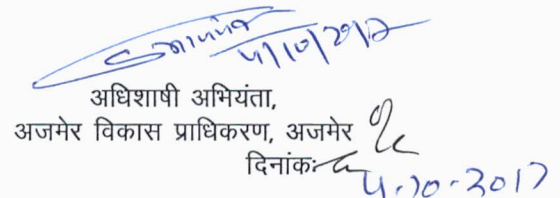 4/10/2017
अधिशाषी अभियंता,
अजमेर विकास प्राधिकरण, अजमेर
दिनांकः
4.10.2017